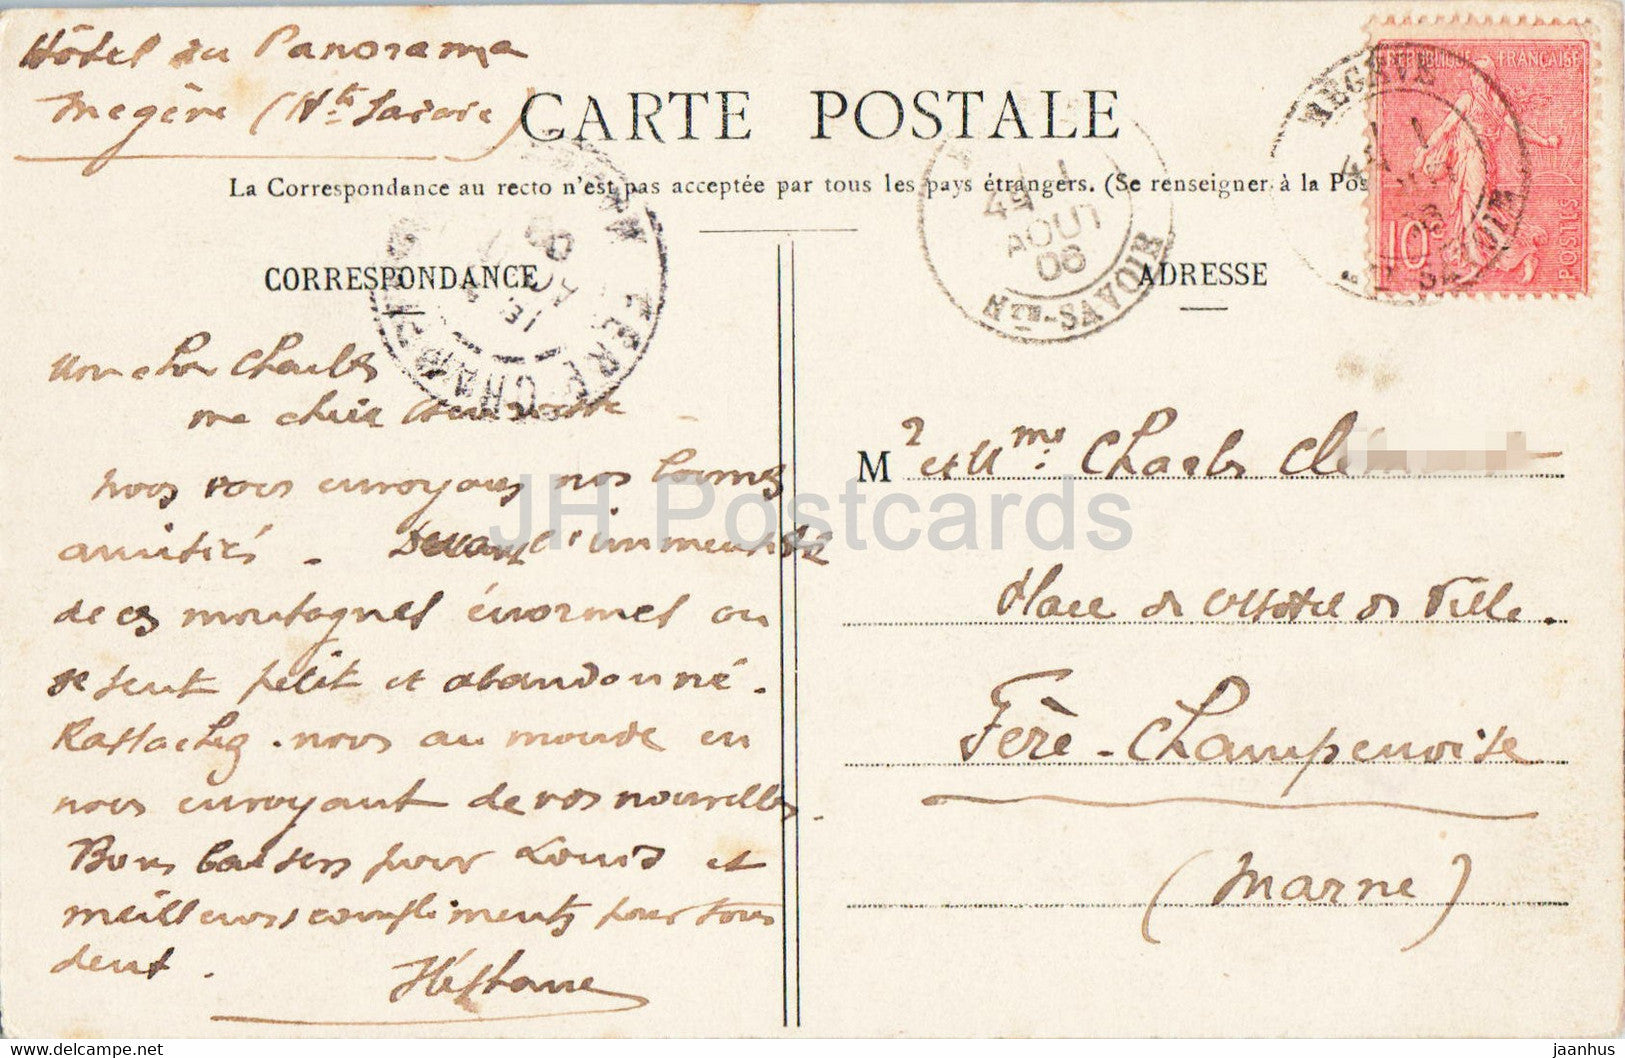 Hôtel du Panorama
Megève (Hte Savoie)
CARTE POSTALE
La Correspondance au recto n'est pas acceptée par tous les pays étrangers. (Se renseigner à la Pos
RÉPUBLIQUE FRANÇAISE
10c
POSTES
MEGÈVE
HTE-SAVOIE
4E
1
AOUT
06
HTE-SAVOIE
FÈRE-CHAMPENOISE
MARNE
CORRESPONDANCE
ADRESSE
Mon cher Charles
ma chère
nous vous envoyons nos bonnes
amitiés. Devant l'immensité
de ces montagnes énormes on
se sent petit et abandonné.
Rattachez-nous au monde en
nous envoyant de vos nouvelles.
Bons baisers pour Louis et
meilleurs compliments pour tous
deux.
M r et Mme Charles Clém
Place de l'Hotel de Ville.
Fère-Champenoise
(Marne)
JH Postcards
jaanhus-postcards.com
jaanhus